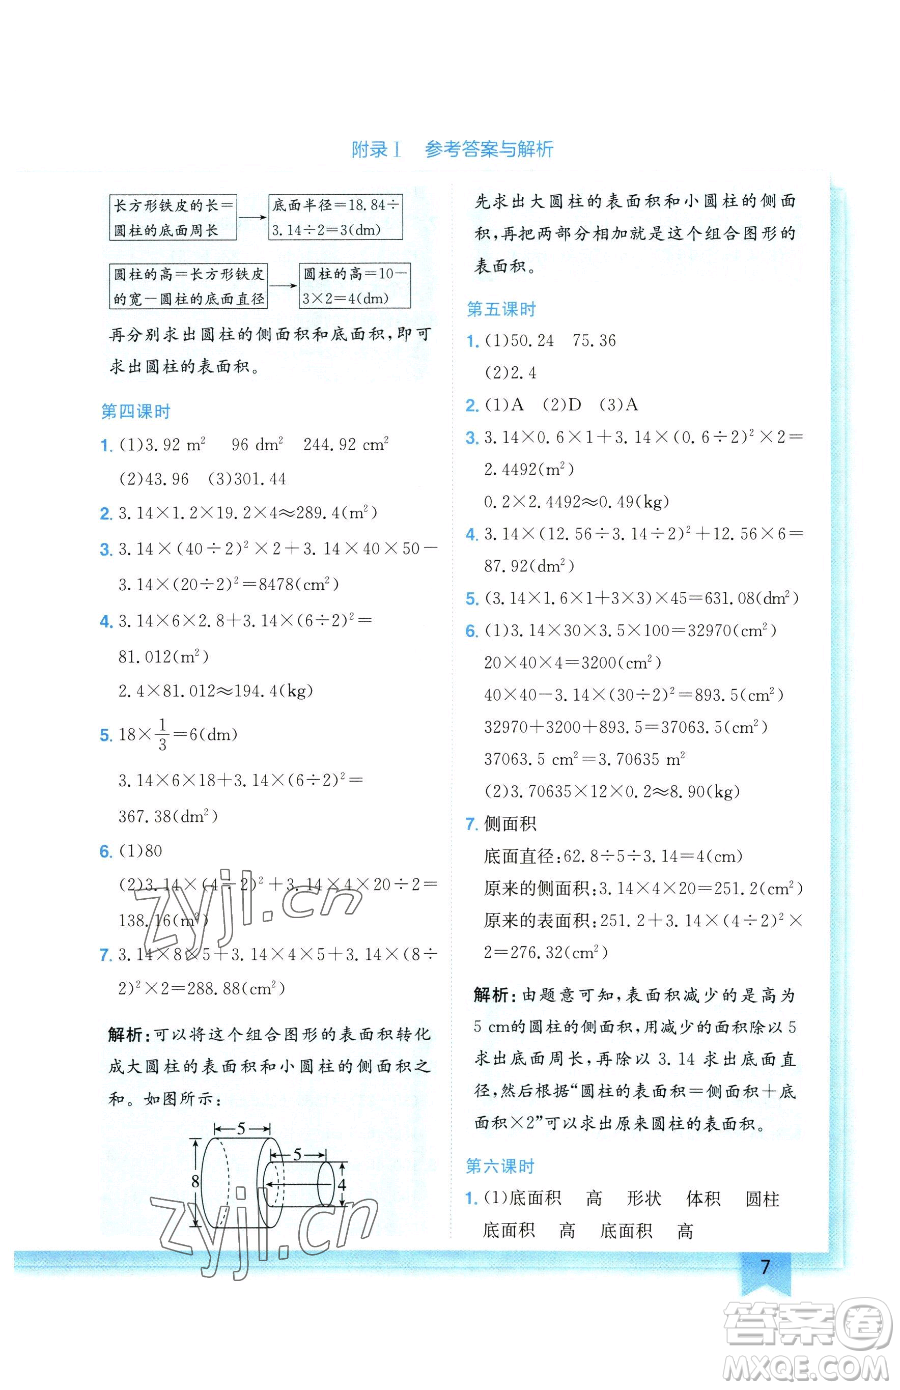 附录1 参考答案与解析
长方形铁皮的长＝
圆柱的底面周长
底面半径＝18.84÷
3.14÷2＝3(dm)
圆柱的高＝长方形铁皮
的宽－圆柱的底面直径
圆柱的高＝10－
3×2＝4(dm)
再分别求出圆柱的侧面积和底面积，即可
求出圆柱的表面积。
第四课时
1. (1)3.92 m² 96 dm² 244.92 cm²
(2)43.96 (3)301.44
2. 3.14×1.2×19.2×4≈289.4(m²)
3. 3.14×(40÷2)²×2＋3.14×40×50－
3.14×(20÷2)²＝8478(cm²)
4. 3.14×6×2.8＋3.14×(6÷2)²＝
81.012(m²)
2.4×81.012≈194.4(kg)
5. 18×1/3＝6(dm)
3.14×6×18＋3.14×(6÷2)²＝
367.38(dm²)
6. (1)80
(2)3.14×(4÷2)²＋3.14×4×20÷2＝
138.16(m²)
7. 3.14×8×5＋3.14×4×5＋3.14×(8÷
2)²×2＝288.88(cm²)
解析：可以将这个组合图形的表面积转化
成大圆柱的表面积和小圆柱的侧面积之
和。如图所示：
5
5
8
4
先求出大圆柱的表面积和小圆柱的侧面
积，再把两部分相加就是这个组合图形的
表面积。
第五课时
1. (1)50.24 75.36
(2)2.4
2. (1)A (2)D (3)A
3. 3.14×0.6×1＋3.14×(0.6÷2)²×2＝
2.4492(m²)
0.2×2.4492≈0.49(kg)
4. 3.14×(12.56÷3.14÷2)²＋12.56×6＝
87.92(dm²)
5. (3.14×1.6×1＋3×3)×45＝631.08(dm²)
6. (1)3.14×30×3.5×100＝32970(cm²)
20×40×4＝3200(cm²)
40×40－3.14×(30÷2)²＝893.5(cm²)
32970＋3200＋893.5＝37063.5(cm²)
37063.5 cm²＝3.70635 m²
(2)3.70635×12×0.2≈8.90(kg)
7. 侧面积
底面直径：62.8÷5÷3.14＝4(cm)
原来的侧面积：3.14×4×20＝251.2(cm²)
原来的表面积：251.2＋3.14×(4÷2)²×
2＝276.32(cm²)
解析：由题意可知，表面积减少的是高为
5 cm的圆柱的侧面积，用减少的面积除以5
求出底面周长，再除以3.14求出底面直
径，然后根据“圆柱的表面积＝侧面积＋底
面积×2”可以求出原来圆柱的表面积。
第六课时
1. (1)底面积 高 形状 体积 圆柱
底面积 高 底面积 高
7
zyjl.cn
zyjl.cn
答案圈
MXQE.COM